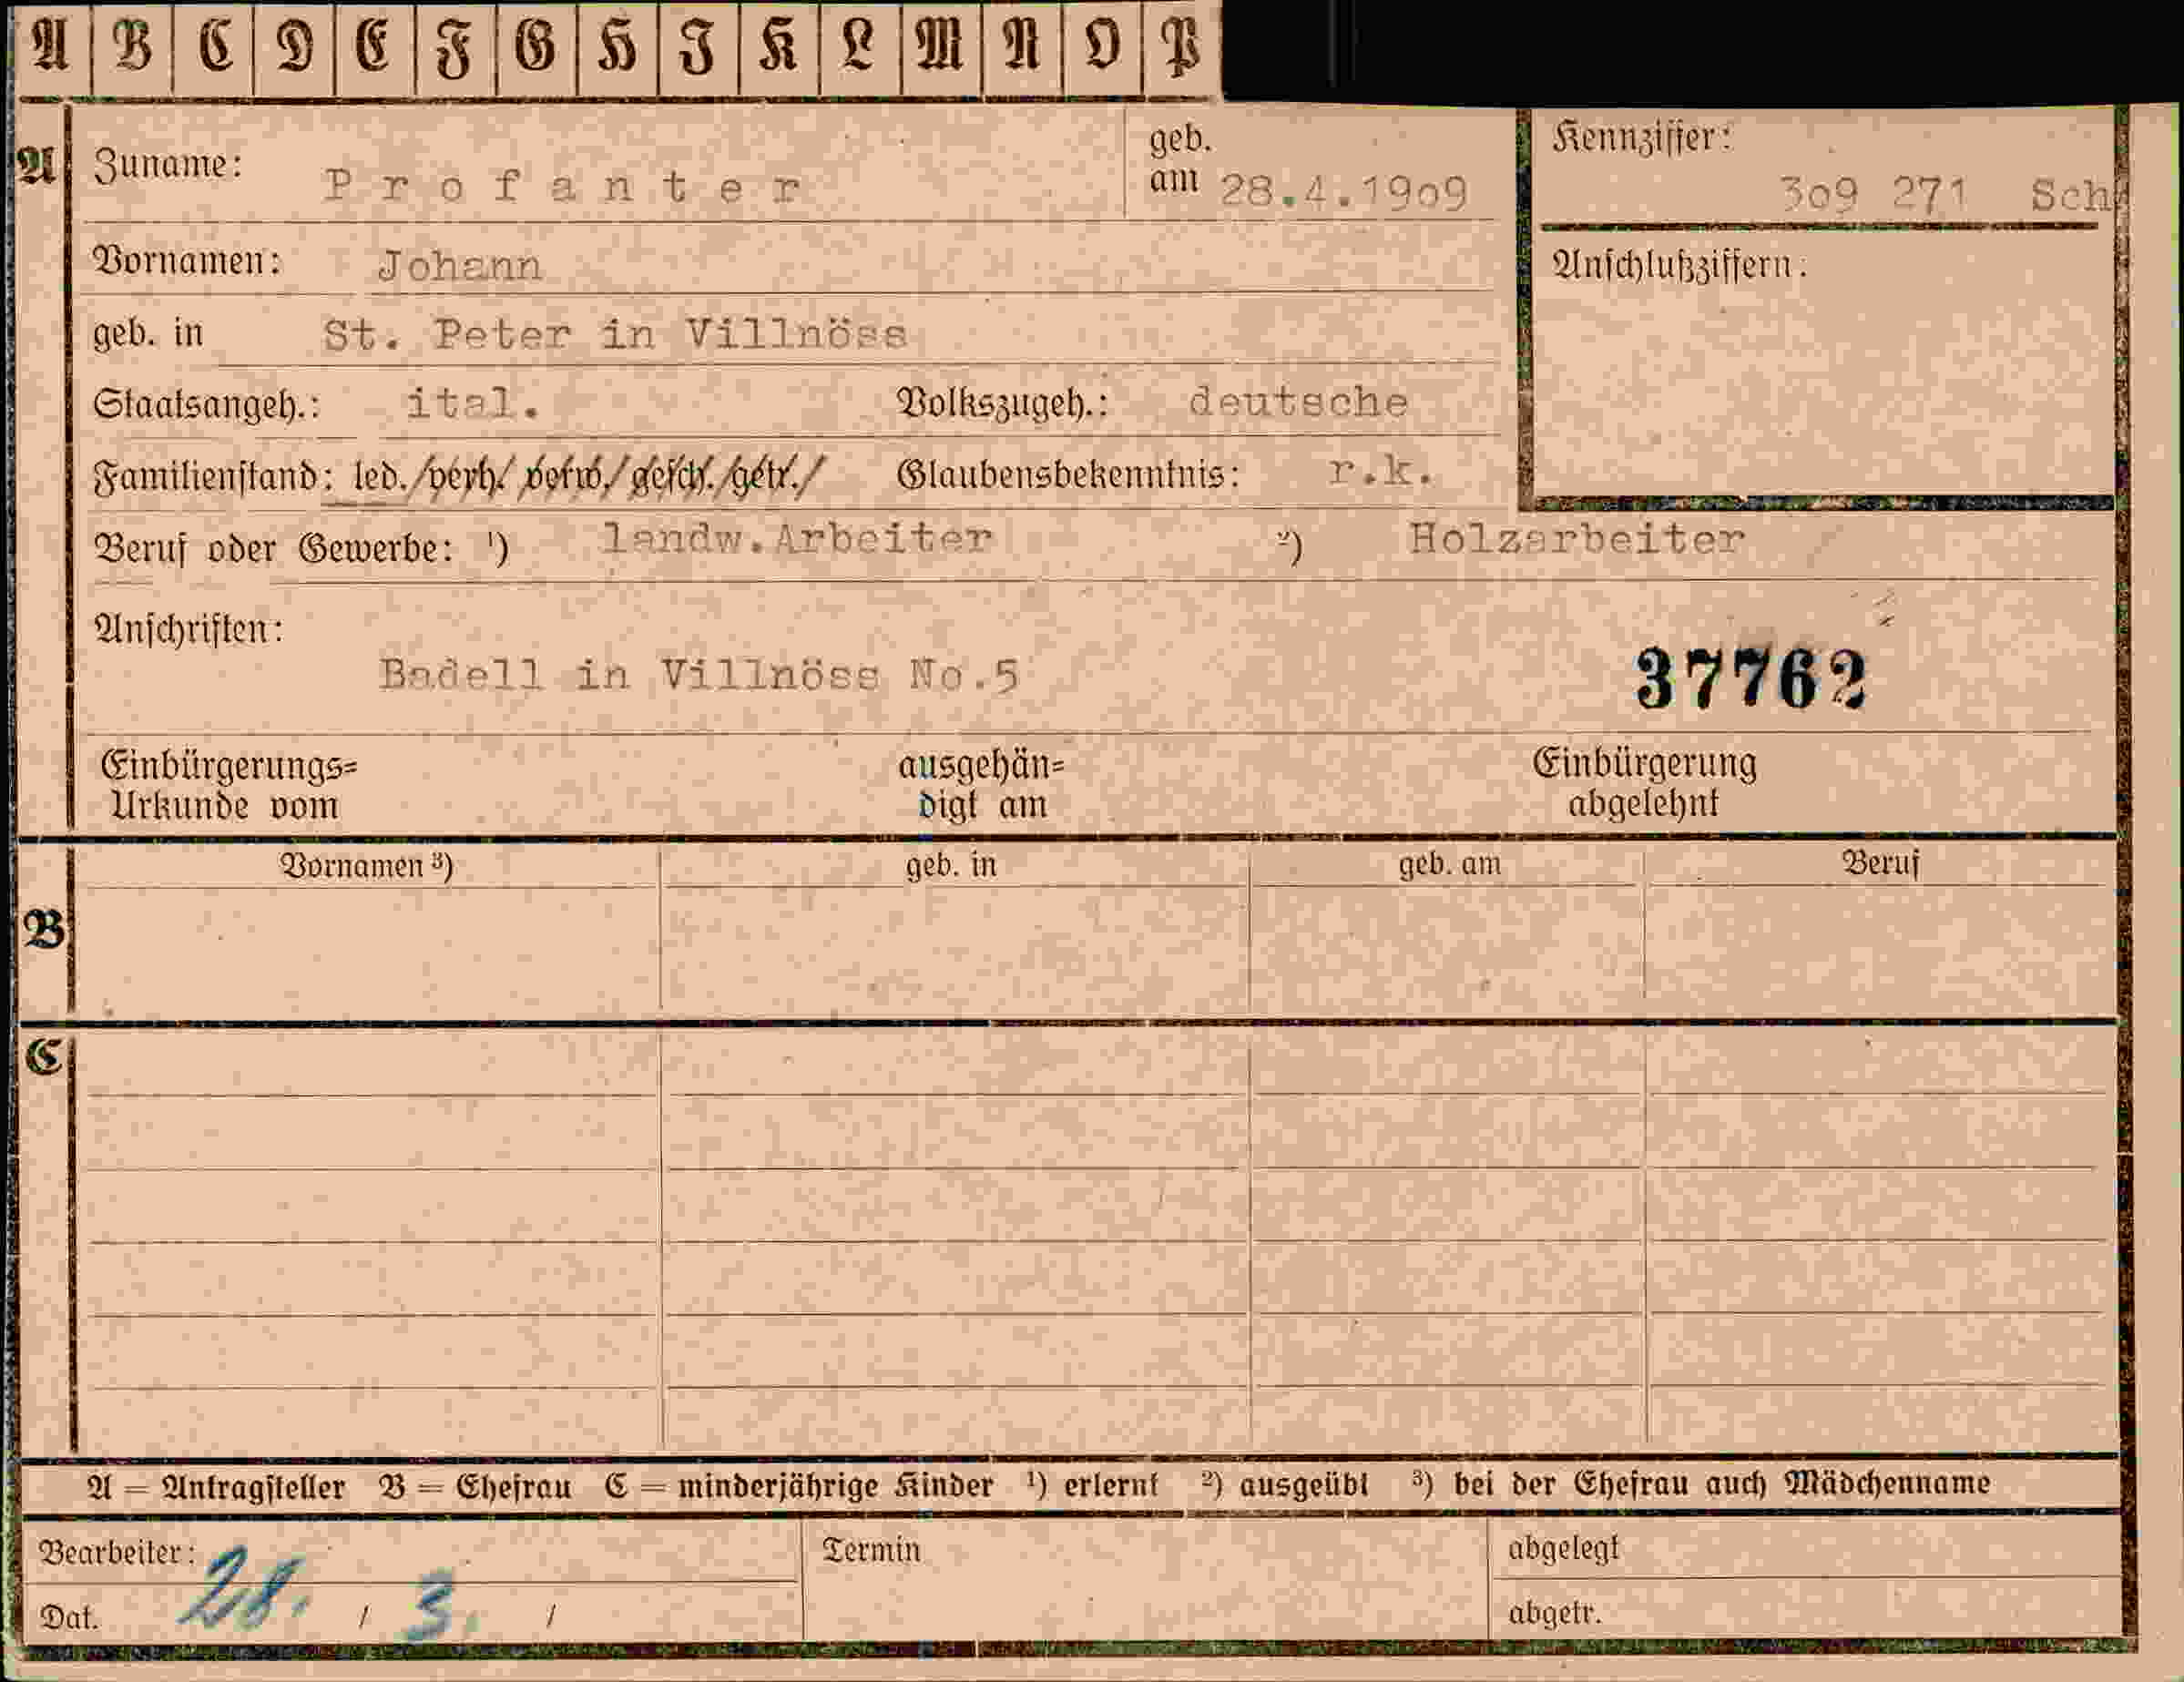 A B C D E F G H I K L M N O P
A Zuname: Profanter geb. am 28.4.1909 Kennziffer: 309 271 Sch
Vornamen: Johann Anschlußziffern:
geb. in St. Peter in Villnöss
Staatsangeh.: ital. Volkszugeh.: deutsche
Familienstand: led./verh./verw./gesch./getr./ Glaubensbekenntnis: r.k.
Beruf oder Gewerbe: ¹) landw.Arbeiter ²) Holzarbeiter
Anschriften:
Badell in Villnöss No.5 37762
Einbürgerungs= ausgehän= Einbürgerung
Urkunde vom digt am abgelehnt
Vornamen ³) geb. in geb. am Beruf
B
C
A = Antragsteller B = Ehefrau C = minderjährige Kinder ¹) erlernt ²) ausgeübt ³) bei der Ehefrau auch Mädchenname
Bearbeiter: Termin abgelegt
Dat. 28. / 3. / abgetr.